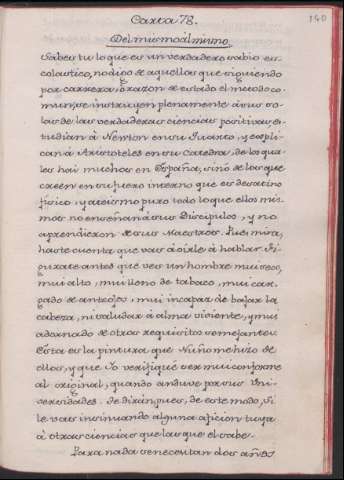 140
Carta 78.
Del mismo al mismo.
Sabes tu lo que es un verdadero sabio es-
colastico, no digo de aquellos que siguiendo
por carrera, ò razon de estado el metodo co-
mun, se instruyen plenamente à sus so-
las de las verdaderas ciencias positivas es-
tudian à Newton en su Quarto, y expli-
can à Aristoteles en su Catedra, de los qua-
les hai muchos en España; sino de los que
creen en su fuero interno que es desatino
fisico, y ateismo puro todo lo que ellos mis-
mos no enseñan à sus Discipulos, y no
aprendieron de sus Maestros. Pues mira,
haste cuenta que vas à oirle à hablar. Fi-
gurate antes que ves un hombre mui seco,
mui alto, mui lleno de tabaco, mui car-
gado de anteojos, mui incapaz de bajar la
cabeza, ni saludar à alma viviente, y mui
adornado de otros requisitos semejantes.
Esta es la pintura que Nuño me hizo de
ellos, y que Yo verifiquè ser mui conforme
al original, quando anduve por sus Uni-
versidades. Te diran, pues, de este modo, si
le vas insinuando alguna aficion tuya
à otras ciencias que las que el sabe.
Para nada se necesitan dos años